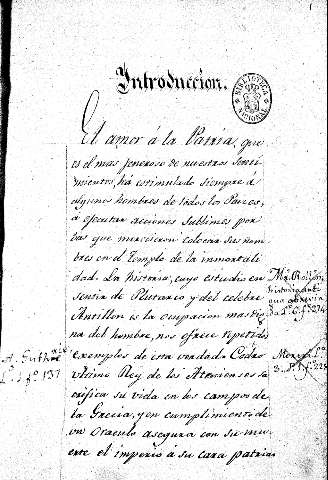 Introduccion.
BIBLIOTECA
NACIONAL
El amor á la Patria, que
es el mas jeneroso de nuestros senti
mientos, há estimulado siempre á
algunos hombres de todos los Paises,
a ejecutar acciones sublimes por
las que merecieron colocar sus nom
bres en el Templo de la inmortali
dad. La historia, cuyo estudio en
sentir de Plutarco y del célebre
Antillon es la ocupacion mas dig
na del hombre, nos ofrece repetidos
exemplos de esta verdad. Codro
ultimo Rey de los Atenienses sa
crifica su vida en los campos de
la Grecia, y en cumplimiento de
un Oraculo asegura con su mu
erte el imperio á su cara patria
historia anti